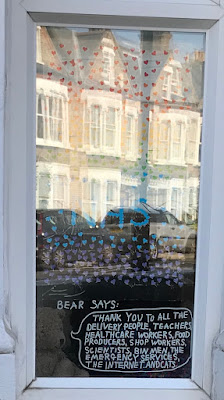 NHS
BEAR SAYS:
THANK YOU TO ALL THE
DELIVERY PEOPLE, TEACHERS,
HEALTHCARE WORKERS, FOOD
PRODUCERS, SHOP WORKERS,
SCIENTISTS, BIN MEN, THE
EMERGENCY SERVICES,
THE INTERNET AND CATS.